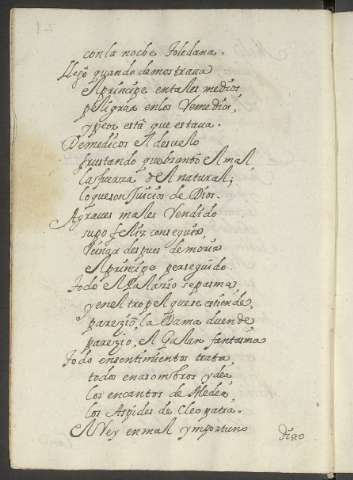 con la noche Toledana.
Llego quando lamostraua
el principe entales medios
peligrar en los Remedios,
y peor esta que estaua.
De medicos el desuelo
frustando quebrantò el mal
la fuerza del natural,
lo que son Juicios de Dios.
A graues males Rendido
supo feliz conseguir,
Reinar despues de morir
el principe perseguido
Todo el Palazio se pasma
y en el tropel que se estiende,
parezio, la Dama duende
parezio, el Galan fantasma
Todo en sentimientos trata
todos en asombros y dea
los encantos de Medea,
los Aspides de Cleopatra.
el Rey en mal ymportuno
digno